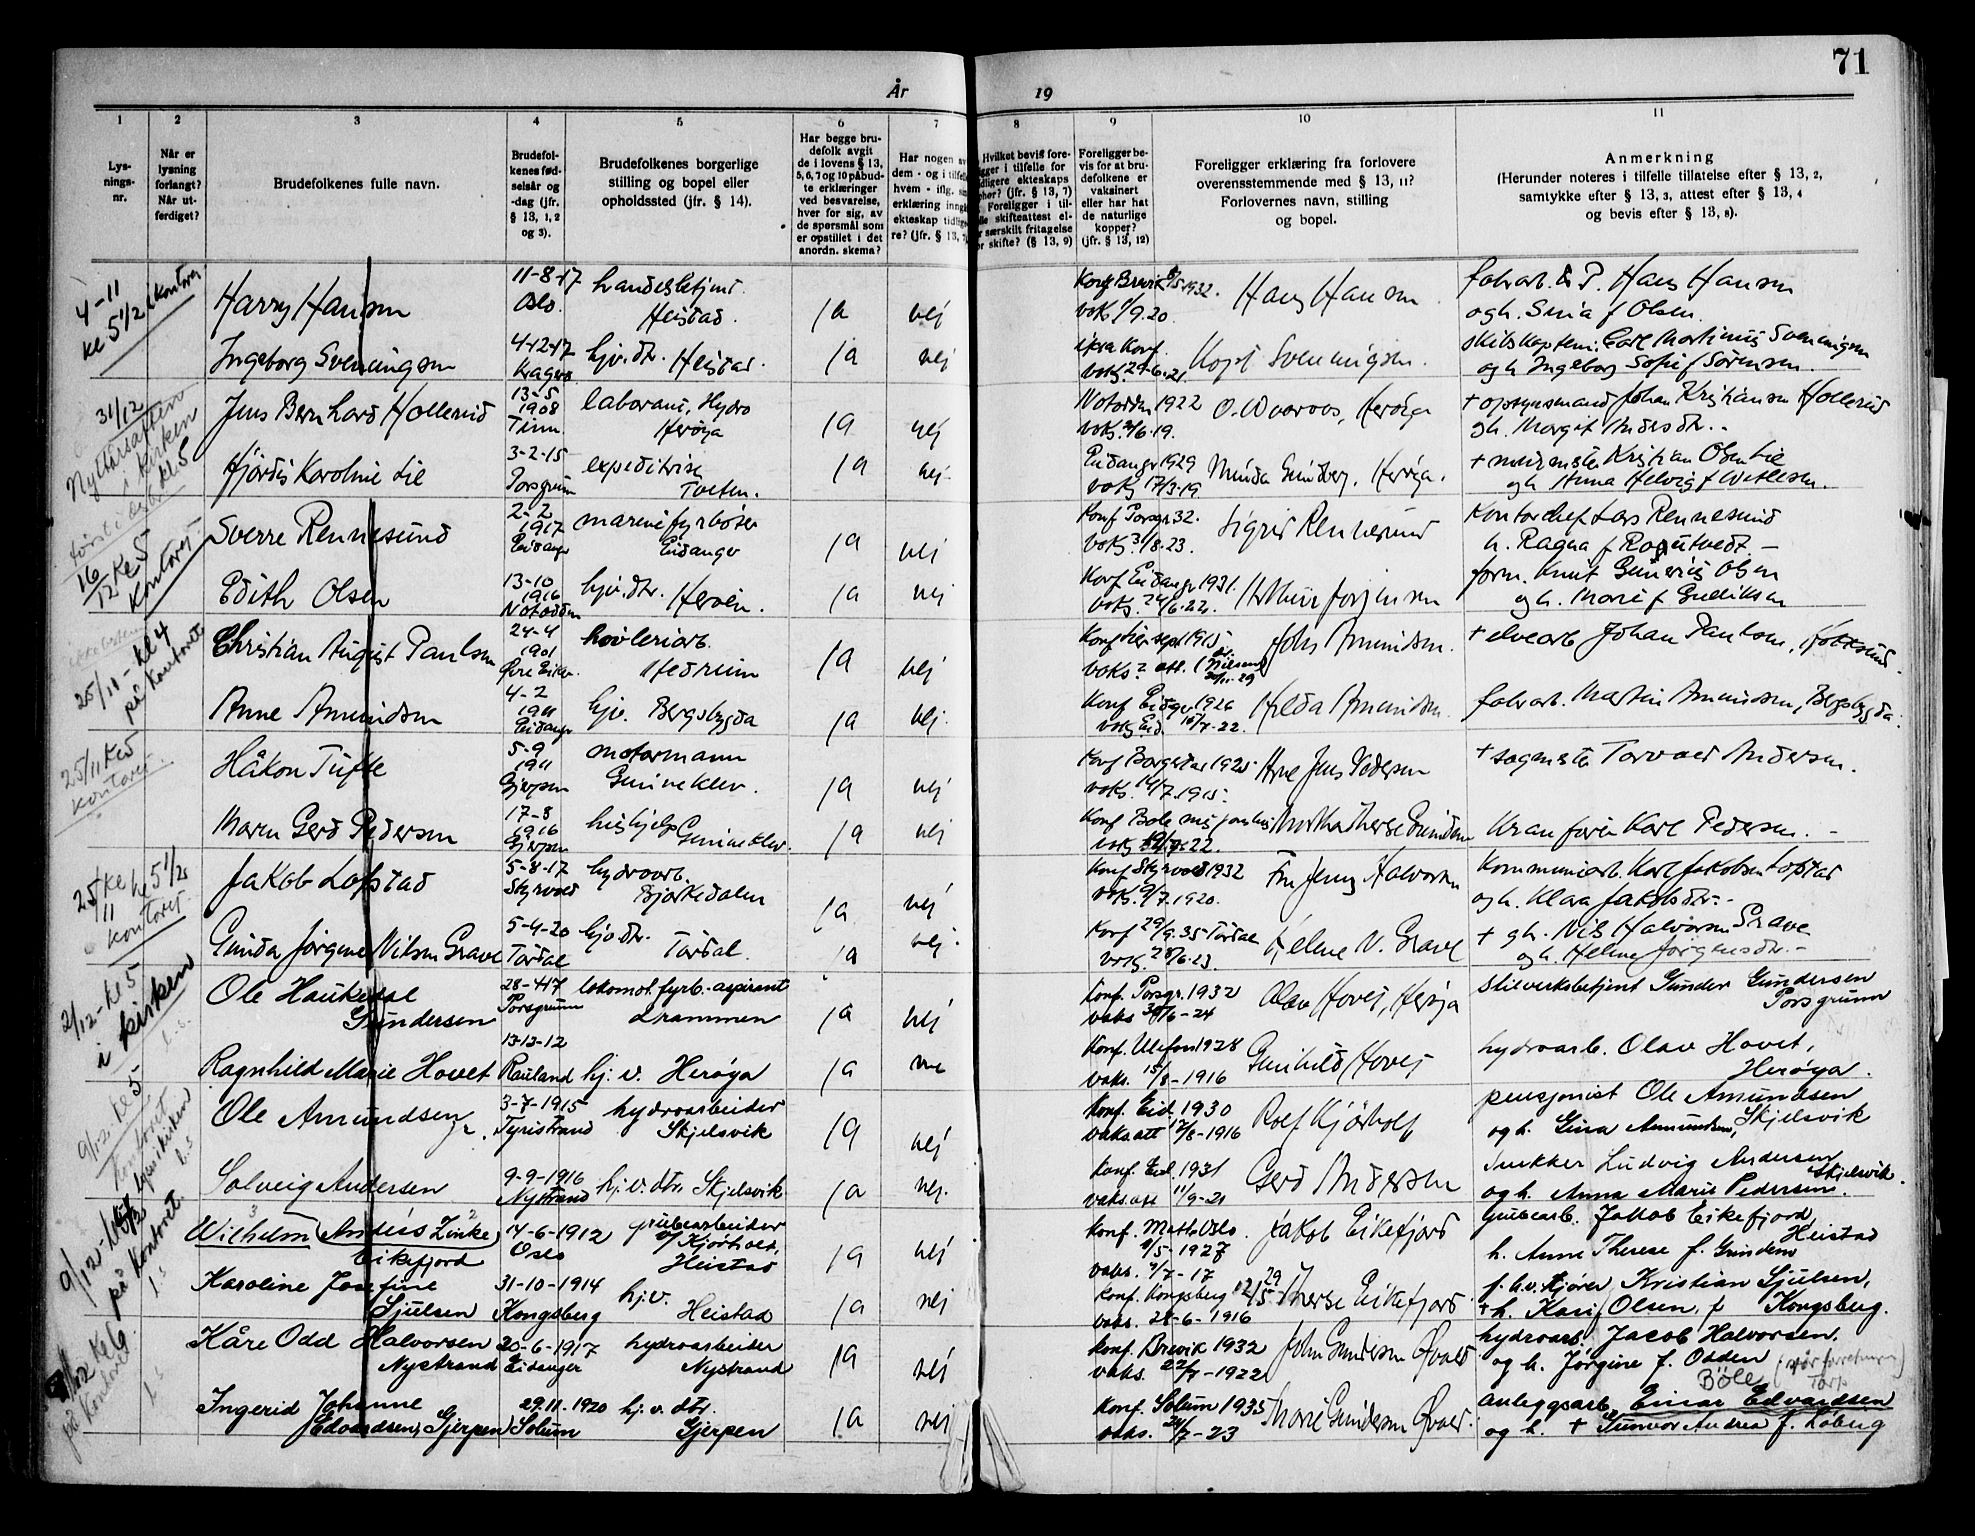 71
År
19
1 2 3 4 5 6 7 8 9 10 11
Lys-
nings-
nr.
Når er
lysning
forlangt?
Når ut-
ferdiget?
Brudefolkenes fulle navn.
Brudefol-
kenes fød-
selsår og
-dag (jfr.
§ 13, 1, 2
og 3).
Brudefolkenes borgerlige
stilling og bopel eller
opholdssted (jfr. § 14).
Har begge bru-
defolk avgit
de i lovens § 13,
5, 6, 7 og 10 påbud-
te erklæringer
ved besvarelse,
hver for sig, av
de spørsmål som
er opstillet i det
anordn. skema?
Har nogen av
dem - og i tilfelle
hvem - iflg.
erklæring inngå
ekteskap tidlig
re? (jfr. § 13, 7)
Hvilket bevis fore-
ligger i tilfelle for
tidligere ekteskaps
opphør? (jfr. § 13, 7)
Foreligger i til-
felle skifteattest el-
ler særskilt fritagelse
for skifte? (§ 13, 9)
Foreligger be-
vis for at bru-
defolkene er
vaksinert
eller har hat
de naturlige
kopper?
(jfr. § 13, 12)
Foreligger erklæring fra forlovere
overensstemmende med § 13, 11?
Forlovernes navn, stilling
og bopel.
Anmerkning
(Herunder noteres i tilfelle tillatelse efter § 13, 2,
samtykke efter § 13, 3, attest efter § 13, 4
og bevis efter § 13, 8).
4-11
kl 5 1/2 kontoret
Harry Hansen
11-8-17
Oslo.
handelsbetjent
Heistad.
ja
nej
Konf Brevik 8/5 1932.
vaks 1/9.20.
Hans Hansen
fabarb. Hans Hansen
og h. Sina f Olsen.
Ingeborg Sveningsen
4-12-17
Kragerø
hjv. dtr. Heistad.
ja
nej
Konf.
vaks. 29-6-21
Sveningsen.
skibskaptein Carl Martinius Sveningsen
og h Ingeborg Sofie f Sørensen.
31/12
Nyttårsaften
i kirken
kl. 5
Jens Bernhard Hollerud
13-5
1908
Tinn.
laborant, Hydro
Herøya
ja
nej
Notodden 1922
vaks. 2/6.19.
O. Waaraas, Herøya
+ opsynsmand Johan Kristiansen Hollerud
og h. Margit Andersdtr.
Hjördis Karoline Lie
3-2-15
Porsgrunn
expeditrise
Tveten.
ja
nej
Eidanger 1929
vaks 17/3-19
Minda Gundersen, Herøya.
+ Kristian Olsen Lie
og h Anna Helvig f Wetlesen.
16/12 kl 5
kontoret
Sverre Rennesund
2-2
1917
Eidanger
marinefyrbøter
Eidanger
ja
nej
Konf Porsgr 32.
vaks 3/8.23.
Sigrid Rennesund
Kontorchef Lars Rennesund
h. Ragna f
Edith Olsen
13-10
1916
Notodden
hjv. dtr. Herøen.
ja
nej
Konf Eidanger 1931.
vaks. 24/6.22.
Jørgensen
form. Knut Gunerius Olsen
og h. Marie f Gudiksen
25/11 - kl 4
på kontoret
Christian August Paulsen
24-4
1901
Øvre Eiker
høvleriarb.
Hedrum
ja
nej
sept 1915
vaks?
Johs Amundsen.
+ elvearb Johan Paulsen, Hokksund.
Anne Amundsen
4-2
1911
Eidanger
hjv. Bergsbygda
ja
nej.
Konf Eidgr 1926
vaks Eid. 15/7.22.
Hilda Amundsen
fabarb. Martin Amundsen, Bergsbygda.
25/11 kl 5
kontoret.
Håkon Tufte
5-9
1911
Gjerpen
motormann
Gunneklev.
ja
nej
Konf Borgestad 1925
vaks. 14/7.1915.
Arne Jens Pedersen
+ sagmester Torvald Andersen.
Maren Gerd Pedersen
17-8
1916
Gjerpen
hushjelp Gunneklev.
ja
nej
Kranfører Karl Pedersen.
25/11 kl 5 1/2
kontoret
Jakob Lofstad
5-8-17
Styrvold
hydroarb.
Bjørkedalen
ja
nej
Konf Styrvold 1932
vaks. 9/7.1920.
Fru Jenny Halvorsen
Kommunearb. Karl Jakobsen Lofstad
og h. Klara Jakobsdtr.
Gunda Jørgine Nilsen Grave
5-4-20
Tördal
hjv. dtr.
Tördal.
ja
nej.
Konf 29/9.35 Tördal
vaks. 28/6.23.
Helene N. Grave
+ gh. Nils Halvorsen Grave
og h. Helene Jørgensdtr.
2/12 - kl 5
i kirken
l.s.
Ole Haukedal
Gundersen
28-4-17
Porsgrunn
lokomot. fyrb.-aspirant
Drammen
ja
nej
Konf. Porsgr. 1932
vaks 30/6-24
Olav Hovet, Herøya
Elverksbetjent Gunder Gundersen
Porsgrunn
Ragnhild Marie Hovet
13-12-12
Rauland
hj. v. Herøya
ja
nei
Konf. Ulefoss 1928
vaks. 15/8-1916
Gunhild Hovet
hydroarb. Olav Hovet,
Herøya.
9/12 - kl 5
kontoret
l.s
Ole Amundsen jr.
3-7-1915
Tyristrand
hydroarbeider
Skjelsvik
ja
nej
Konf. Eid. 1930
vaks. att 12/8-1916
Rolf Kjørholt
pensjonist Ole Amundsen
og h. Gina Amundsen, Skjelsvik
Solveig Andersen
9-9-1916
Nystrand
hj. v. dtr. Skjelsvik
ja
nej.
Konf. Eid. 1931
vaks. att 11/9-21
Gerd Andersen
Snekker Ludvig Andersen
og h. Anna Marie Pedersen. Skjelsvik.
9/12
på kontoret.
l.s
Wilhelm (Andreas Linke)
Eikefjord
14-6-1912
Oslo
grubearbeider
v/ Kjørholt,
Heistad
ja
nej
Konf. Matth. Oslo.
8/5-1927
vaks. 9/7-17
Jakob Eikefjord
Grubearb. Jakob Eikefjord
Heistad
h. Anne Therese f. Gundersen
Karoline Josefine
Sjulsen
31-10-1914
Kongsberg
hj.v.
Heistad
ja
nej
Konf. Kongsberg
vaks. 28-6-1916
Therese Eikefjord
Kristian Sjulsen,
+ h. Kari Olsen, f Kongsberg.
kl 6
på kontoret
l.s
Kåre Odd Halvorsen
Nystrand
20-6-1917
Eidanger
hydroarbeider
Nystrand
ja
nej
Konf. Brevik 1932
vaks. 22/7-1922
John Gundersen Øvald
hydroarb Jacob Halvorsen,
og h. Jørgine f. Odden
Ingerid Johanne
Edvardsen, Gjerpen
29.11-1920
Solum
hj. v. dtr.
Gjerpen
ja
nej
Konf. Solum 1935
vaks. 24/7-23
Marie Gundersen Øvald.
Bøle
Anleggsarb. Einar Edvardsen
og h. + Gunvor Andrea f. Loberg